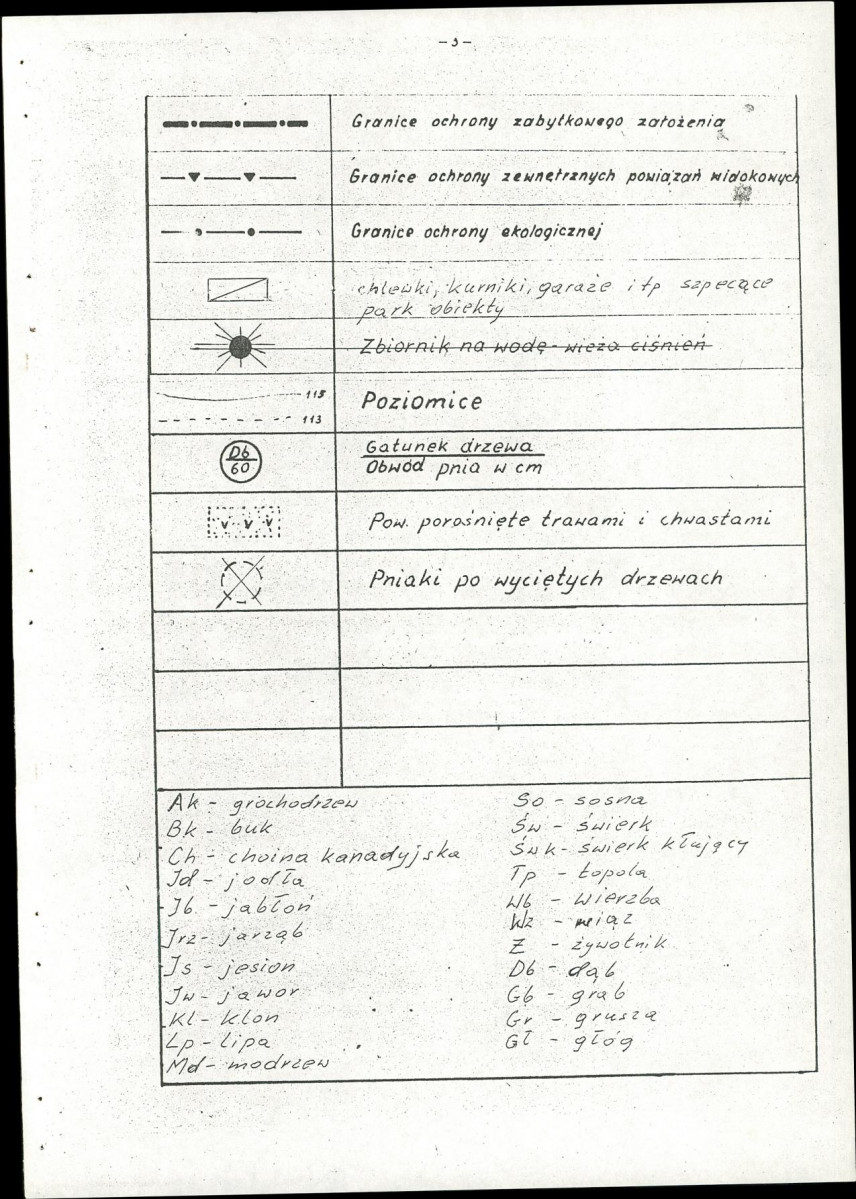 - 3 -
Granice ochrony zabytkowego założenia
Granice ochrony zewnętrznych powiązań widokowych
Granice ochrony ekologicznej
chlewki, kurniki, garaże i tp szpecące
park obiekty
Zbiornik na wodę - wieża ciśnień
115
113
Poziomice
Db
60
Gatunek drzewa
Obwód pnia w cm
v v v
Pow. porośnięte trawami i chwastami
Pniaki po wyciętych drzewach
Ak - grochodrzew
Bk - buk
Ch - choina kanadyjska
Jd - jodła
Jb. - jabłoń
Jrz - jarząb
Js - jesion
Jw - jawor
Kl - klon
Lp - lipa
Md - modrzew
So - sosna
Św - świerk
Św k - świerk kłujący
Tp - topola
Wb - wierzba
Wz - wiąz
Ż - żywotnik
Db - dąb
Gb - grab
Gr - grusza
Gł - głóg